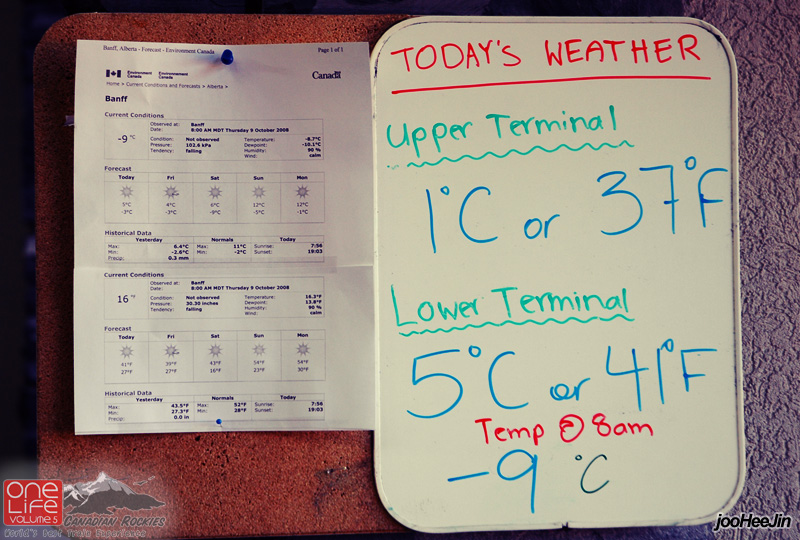 Banff, Alberta - Forecast - Environment Canada Page 1 of 1
Environment Canada Environnement Canada Canada
Home > Current Conditions and Forecasts > Alberta >
Banff
Current Conditions
-9 °C
Observed at: Banff
Date: 8:00 AM MDT Thursday 9 October 2008
Condition: Not observed Temperature: -8.7°C
Pressure: 102.6 kPa Dewpoint: -10.1°C
Tendency: falling Humidity: 90 %
Wind: calm
Forecast
Today Fri Sat Sun Mon
5°C 4°C 6°C 12°C 12°C
-3°C -3°C -9°C -5°C -1°C
Historical Data
Yesterday Normals Today
Max: 6.4°C Max: 11°C Sunrise: 7:56
Min: -2.6°C Min: -2°C Sunset: 19:03
Precip: 0.3 mm
Current Conditions
16 °F
Observed at: Banff
Date: 8:00 AM MDT Thursday 9 October 2008
Condition: Not observed Temperature: 16.3°F
Pressure: 30.30 inches Dewpoint: 13.8°F
Tendency: falling Humidity: 90 %
Wind: calm
Forecast
Today Fri Sat Sun Mon
41°F 39°F 43°F 54°F 54°F
27°F 27°F 16°F 23°F 30°F
Historical Data
Yesterday Normals Today
Max: 43.5°F Max: 52°F Sunrise: 7:56
Min: 27.3°F Min: 28°F Sunset: 19:03
Precip: 0.0 in
TODAY'S WEATHER
Upper Terminal
1°C or 37°F
Lower Terminal
5°C or 41°F
Temp @ 8am
-9 °C
one
Life
VOLUME 5
CANADIAN ROCKIES
World's Best Train Experience
jooHeeJin